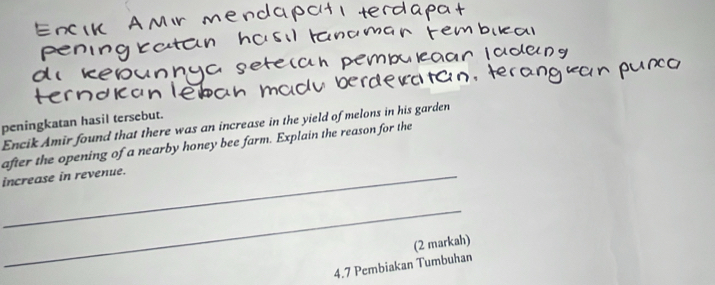 Encik Amir mendapati terdapat
peningkatan hasil tanaman tembikai
di kebunnya setelah pembukaan ladang
ternakan lebah madu berdekatan. terangkan punca
peningkatan hasil tersebut.
Encik Amir found that there was an increase in the yield of melons in his garden
after the opening of a nearby honey bee farm. Explain the reason for the
increase in revenue.
(2 markah)
4.7 Pembiakan Tumbuhan